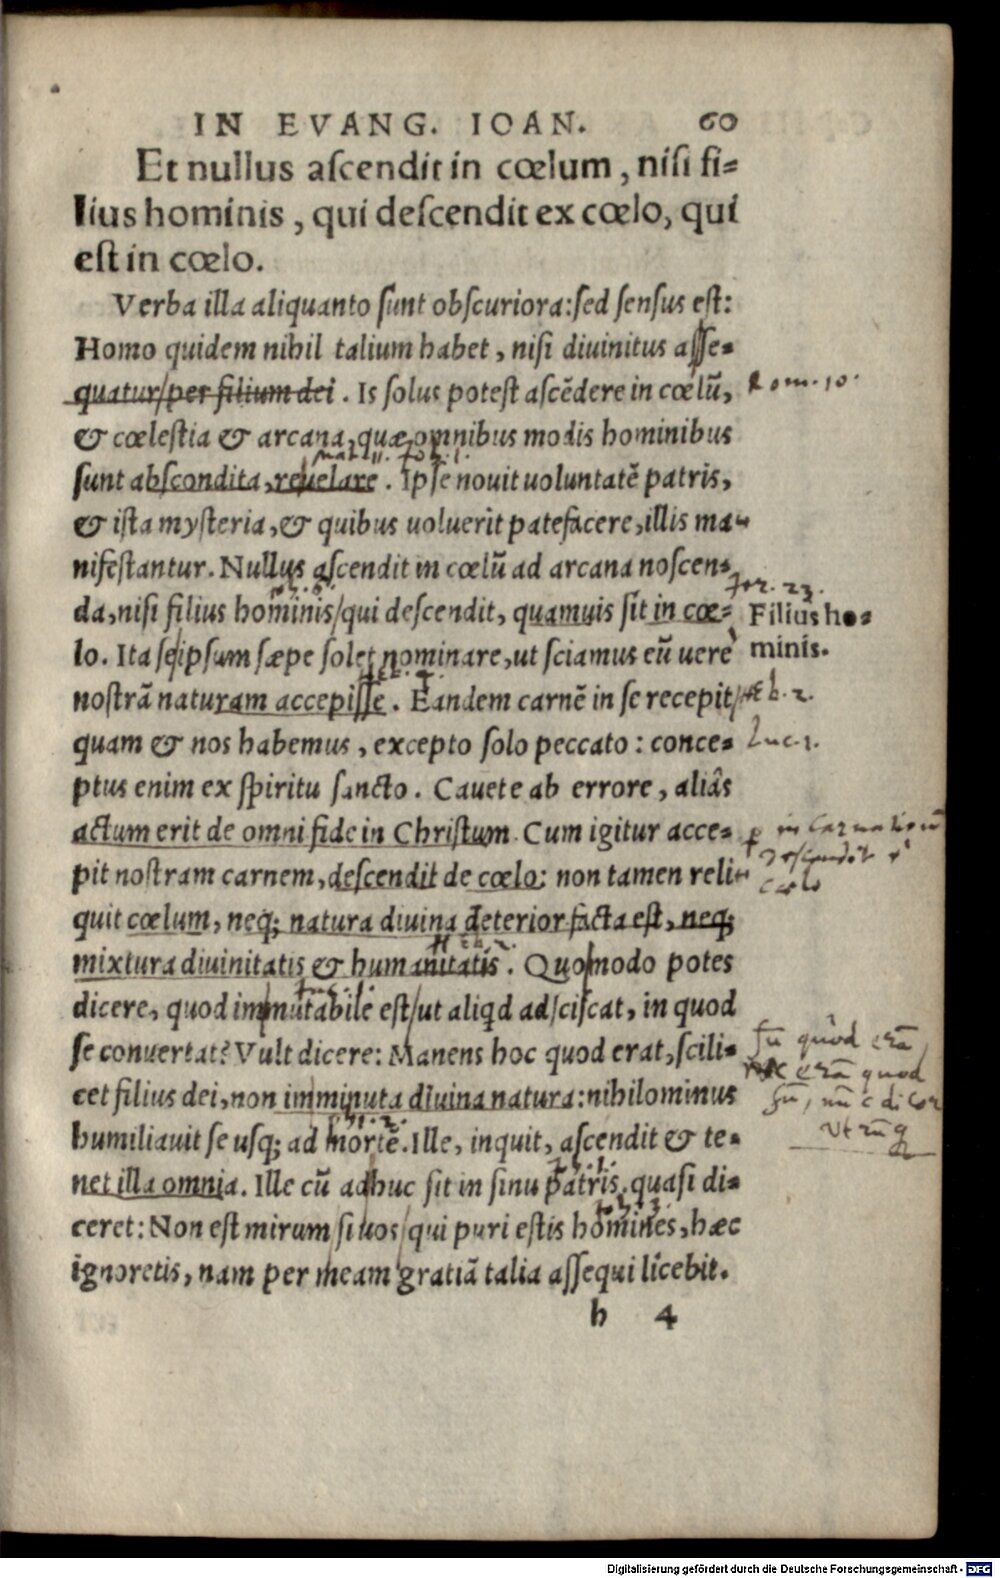 IN EVANG. IOAN. 60
Et nullus ascendit in cœlum, nisi fi-
lius hominis, qui descendit ex cœlo, qui
est in cœlo.
Verba illa aliquanto sunt obscuriora: sed sensus est:
Homo quidem nihil talium habet, nisi diuinitus asse-
quatur/per filium dei. Is solus potest ascēdere in cœlū, Rom. 10.
& cœlestia & arcana, quæ omnibus modis hominibus
Mat. 11. Joh. 1.
sunt abscondita, reuelare. Ipse nouit uoluntatē patris,
& ista mysteria, & quibus uoluerit patefacere, illis ma-
nifestantur. Nullus ascendit in cœlū ad arcana noscen-
Jer. 23.
da, nisi filius hominis/qui descendit, quamuis sit in cœ- Filius ho-
lo. Ita seipsum sæpe solet nominare, ut sciamus eū uerè minis.
nostrā naturam accepisse. Eandem carnē in se recepit/ Heb. 2.
quam & nos habemus, excepto solo peccato: conce- Luc. 1.
ptus enim ex spiritu sancto. Cauete ab errore, aliâs
actum erit de omni fide in Christum. Cum igitur acce- p incarnationē
pit nostram carnem, descendit de cœlo: non tamen reli- descendit
cœlo
quit cœlum, neq; natura diuina deterior facta est, neq;
mixtura diuinitatis & humanitatis. Quomodo potes
dicere, quod immutabile est/ut aliqd adsciscat, in quod
se conuertat? Vult dicere: Manens hoc quod erat, scili- sū quod erā
cet filius dei, non imminuta diuina natura: nihilominus nec erā quod
sū, nūc dicor
humiliauit se usq; ad mortē. Ille, inquit, ascendit & te- utrūq
net illa omnia. Ille cū adhuc sit in sinu patris. quasi di-
ceret: Non est mirum/si uos/qui puri estis homines, hæc
ignoretis, nam per meam gratiā talia assequi licebit.
h 4
Digitalisierung gefördert durch die Deutsche Forschungsgemeinschaft - DFG